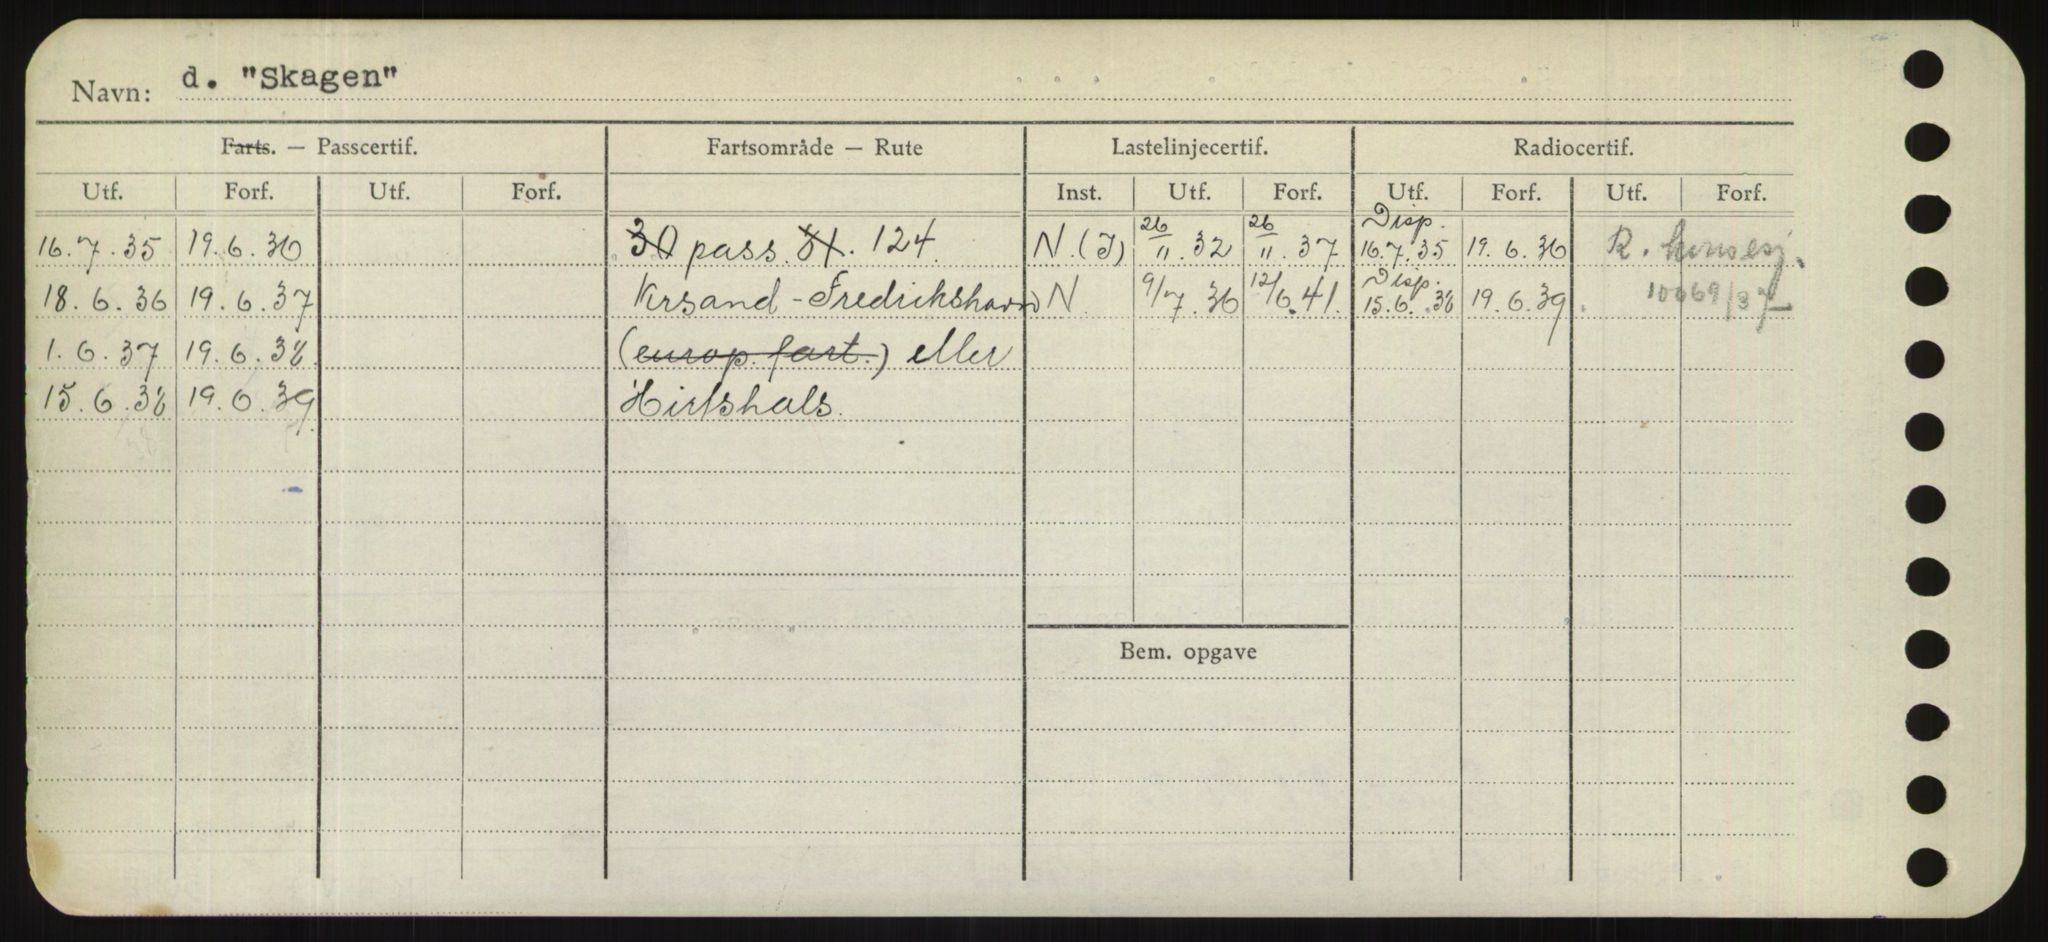 Navn: d. "Skagen"
Farts. — Passcertif. Fartsområde — Rute Lastelinjecertif. Radiocertif.
Utf. Forf. Utf. Forf. Inst. Utf. Forf. Utf. Forf. Utf. Forf.
16.7.35 19.6.36 30 pass. 124. N.(I) 26/11.32 26/11.37 Disp. 16.7.35 19.6.36 R.
18.6.36 19.6.37 Krsand - Fredrikshavn N. 9/7.36 12/6.41. Disp. 15.6.38 19.6.39 10069/37
1.6.37 19.6.38. (europ. fart.) eller
15.6.38 19.6.39 Hirtshals.
Bem. opgave